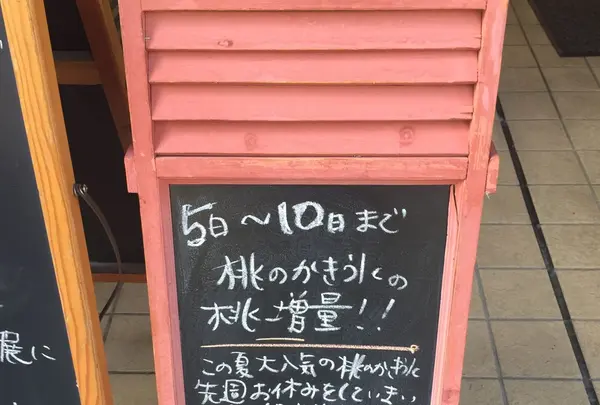 5日～10日まで
桃のかき氷の
桃増量!!
この夏大人気の桃のかき氷
先週お休みをしていまい
展に